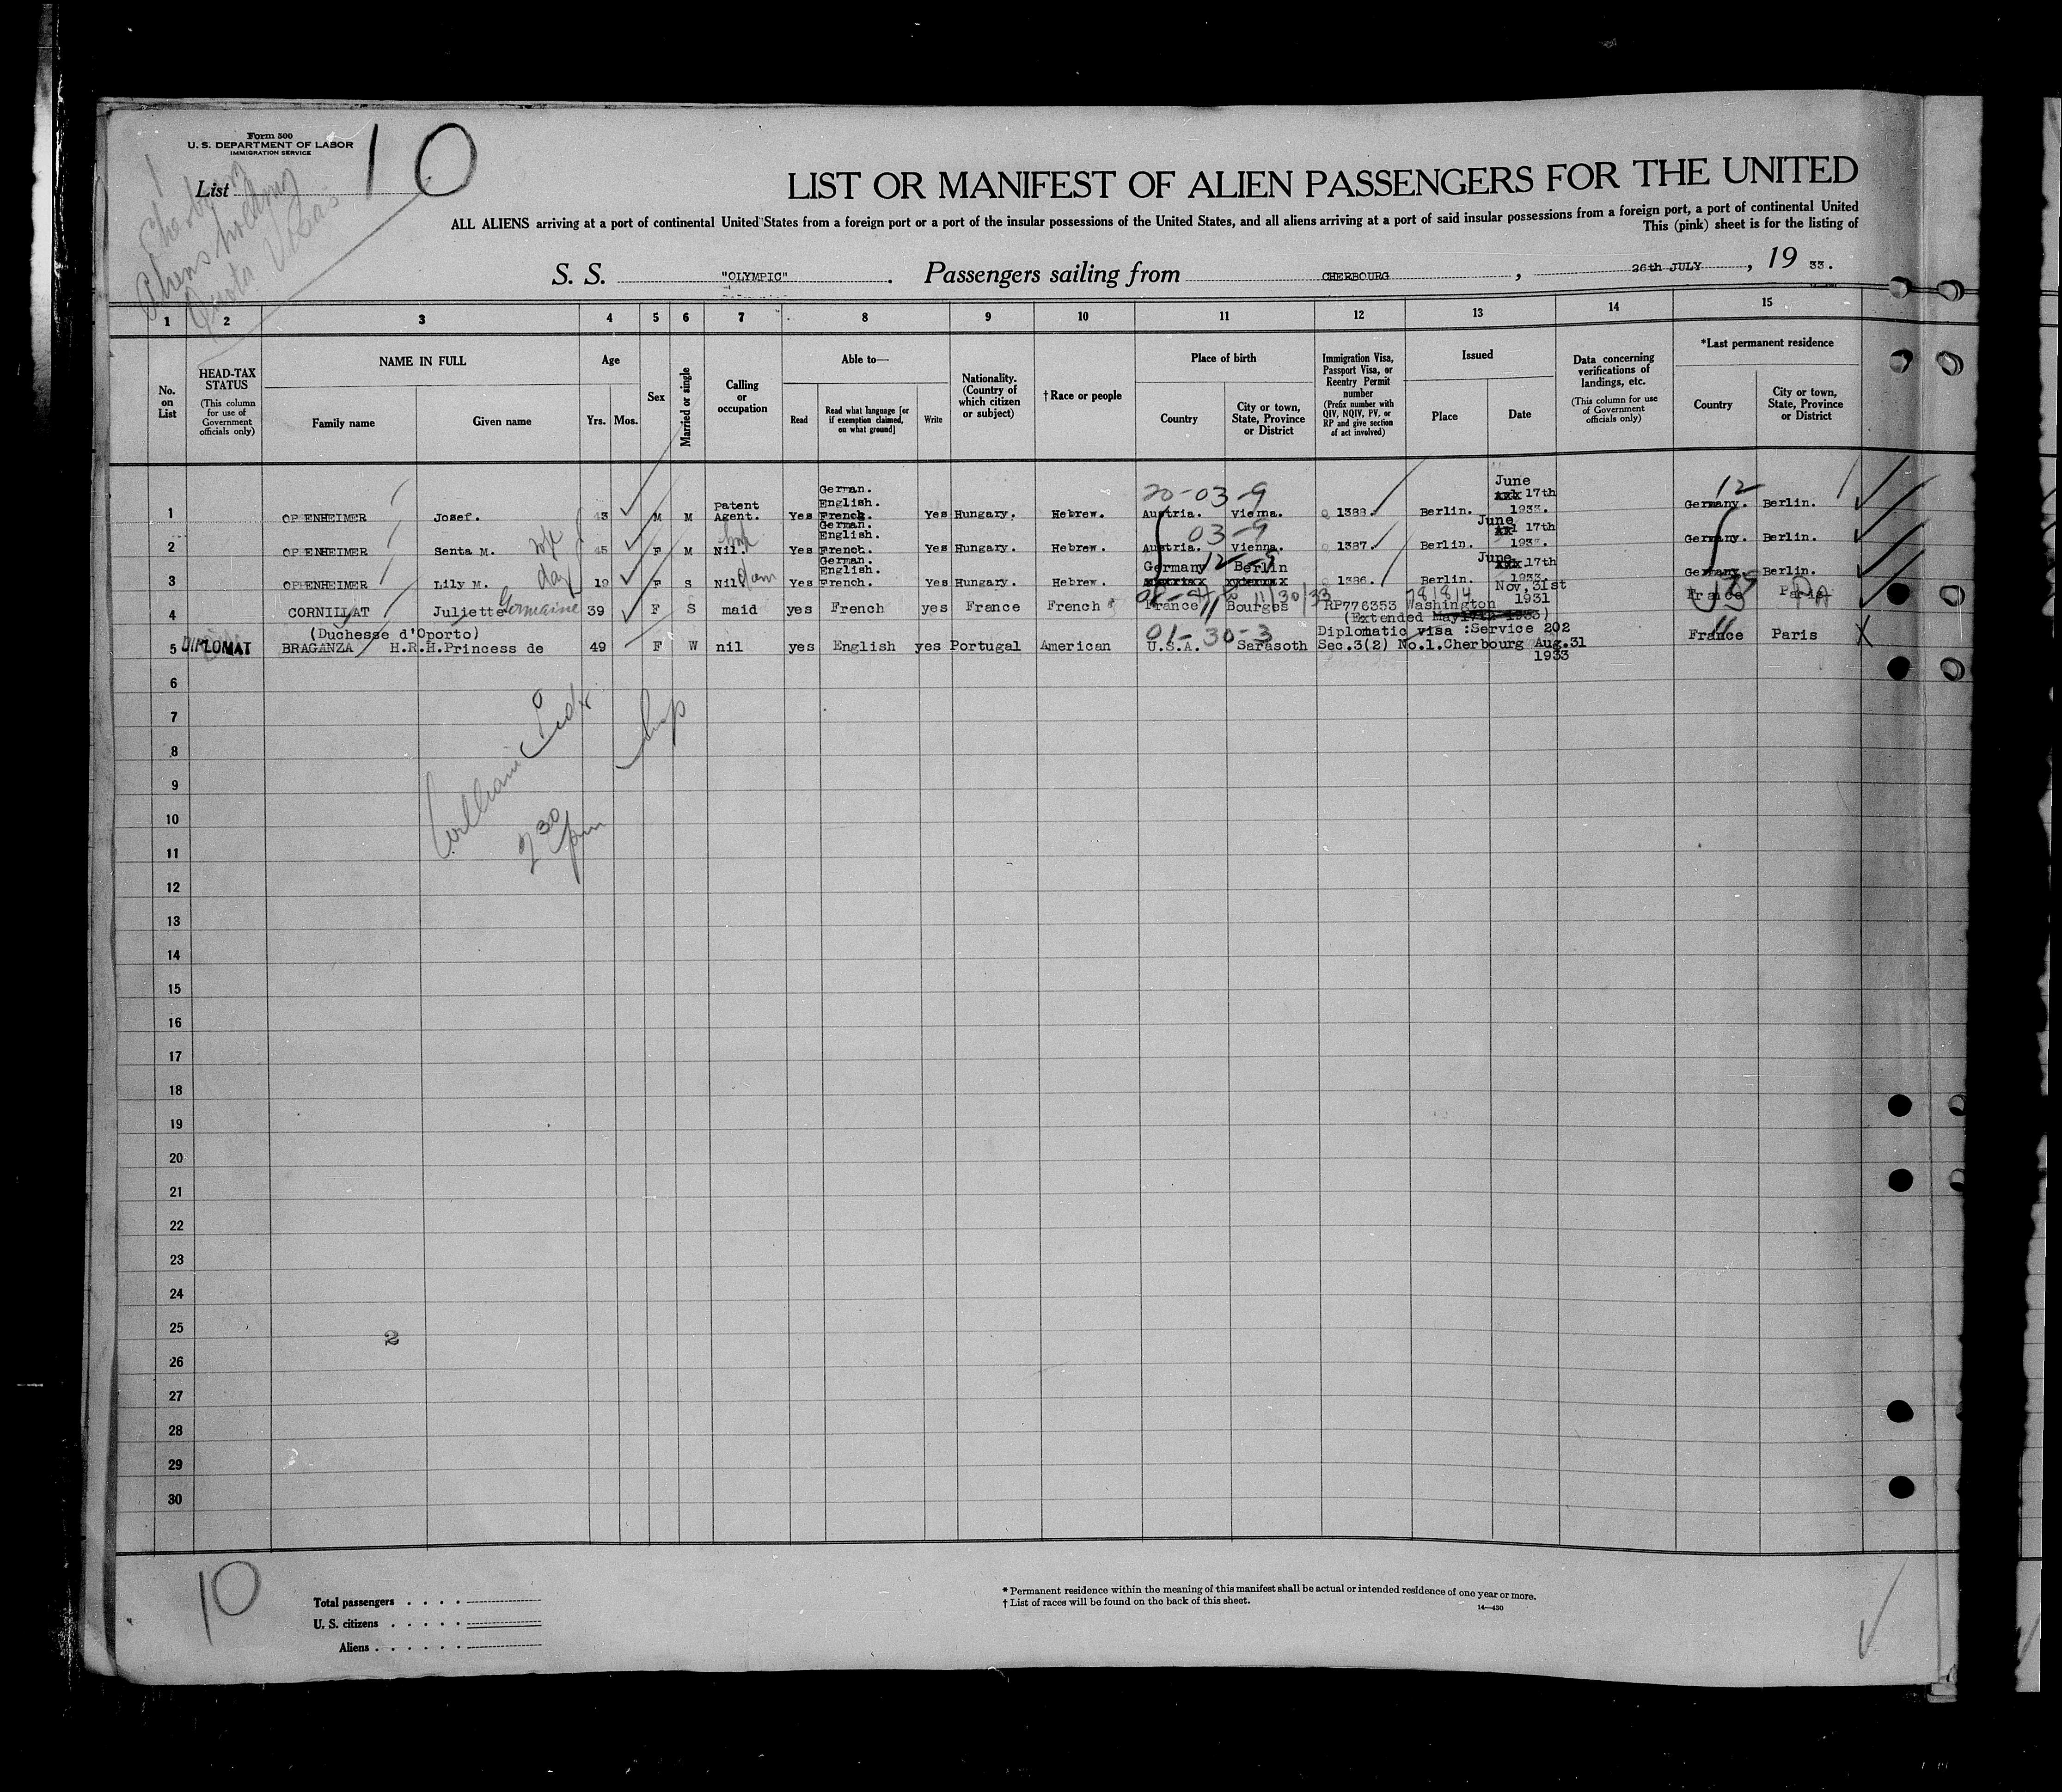 Form 500
U. S. DEPARTMENT OF LABOR
IMMIGRATION SERVICE
List 10
Aliens holding
Quota Visas
LIST OR MANIFEST OF ALIEN PASSENGERS FOR THE UNITED
ALL ALIENS arriving at a port of continental United States from a foreign port or a port of the insular possessions of the United States, and all aliens arriving at a port of said insular possessions from a foreign port, a port of continental United
This (pink) sheet is for the listing of
S. S. "OLYMPIC". Passengers sailing from CHERBOURG, 26th JULY, 19 33.
1 2 3 4 5 6 7 8 9 10 11 12 13 14 15
No. on List
HEAD-TAX STATUS
(This column for use of Government officials only)
NAME IN FULL
Family name
Given name
Age
Yrs.
Mos.
Sex
Married or single
Calling or occupation
Able to—
Read
Read what language [or if exemption claimed, on what ground]
Write
Nationality. (Country of which citizen or subject)
† Race or people
Place of birth
Country
City or town, State, Province or District
Immigration Visa, Passport Visa, or Reentry Permit number
(Prefix number with QIV, NQIV, PV, or RP and give section of act involved)
Issued
Place
Date
Data concerning verifications of landings, etc.
(This column for use of Government officials only)
*Last permanent residence
Country
City or town, State, Province or District
20-03-9
1 OPPENHEIMER Josef. 43 M M Patent Agent. Yes German. English. French. Yes Hungary. Hebrew. Austria. Vienna. Q 1388. Berlin. June 17th 1933. Germany. Berlin.
12
03-9
2 OPPENHEIMER Senta M. wife 45 F M Nil. Yes German. English. French. Yes Hungary. Hebrew. Austria. Vienna. Q 1387. Berlin. June 17th 1933. Germany. Berlin.
12-9
3 OPPENHEIMER Lily M. dau 19 F S Nil Yes German. English. French. Yes Hungary. Hebrew. Germany Berlin 1386. Berlin. June 17th 1933. Germany. Berlin.
4 CORNILLAT Juliette Germaine 39 F S maid yes French yes France French France Bourges RP776353 Washington Nov, 31st 1931 France Paris
11/30/33
(Extended May 17th 1933)
(Duchesse d'Oporto)
01-30-3
5 DIPLOMAT BRAGANZA H.R.H.Princess de 49 F W nil yes English yes Portugal American U.S.A. Sarasoth Diplomatic visa :Service 202 Sec.3(2) No.1.Cherbourg Aug.31 1933 France Paris X
6
7
8
9
10
11
12
13
14
15
16
17
18
19
20
21
22
23
24
25
26
27
28
29
30
William
2 30 pm
2
10
Total passengers
U. S. citizens
Aliens
* Permanent residence within the meaning of this manifest shall be actual or intended residence of one year or more.
† List of races will be found on the back of this sheet.
14—430